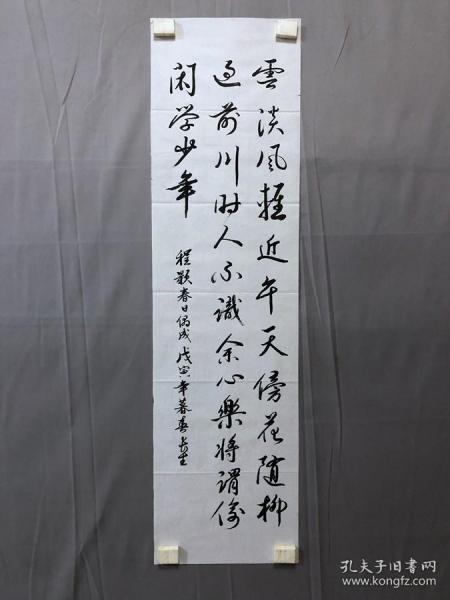 雲淡風輕近午天傍花随柳
過前川时人不識余心樂将謂偷
闲学少年
程颢春日偶成戊寅年暮春
孔夫子旧书网
www.kongfz.com